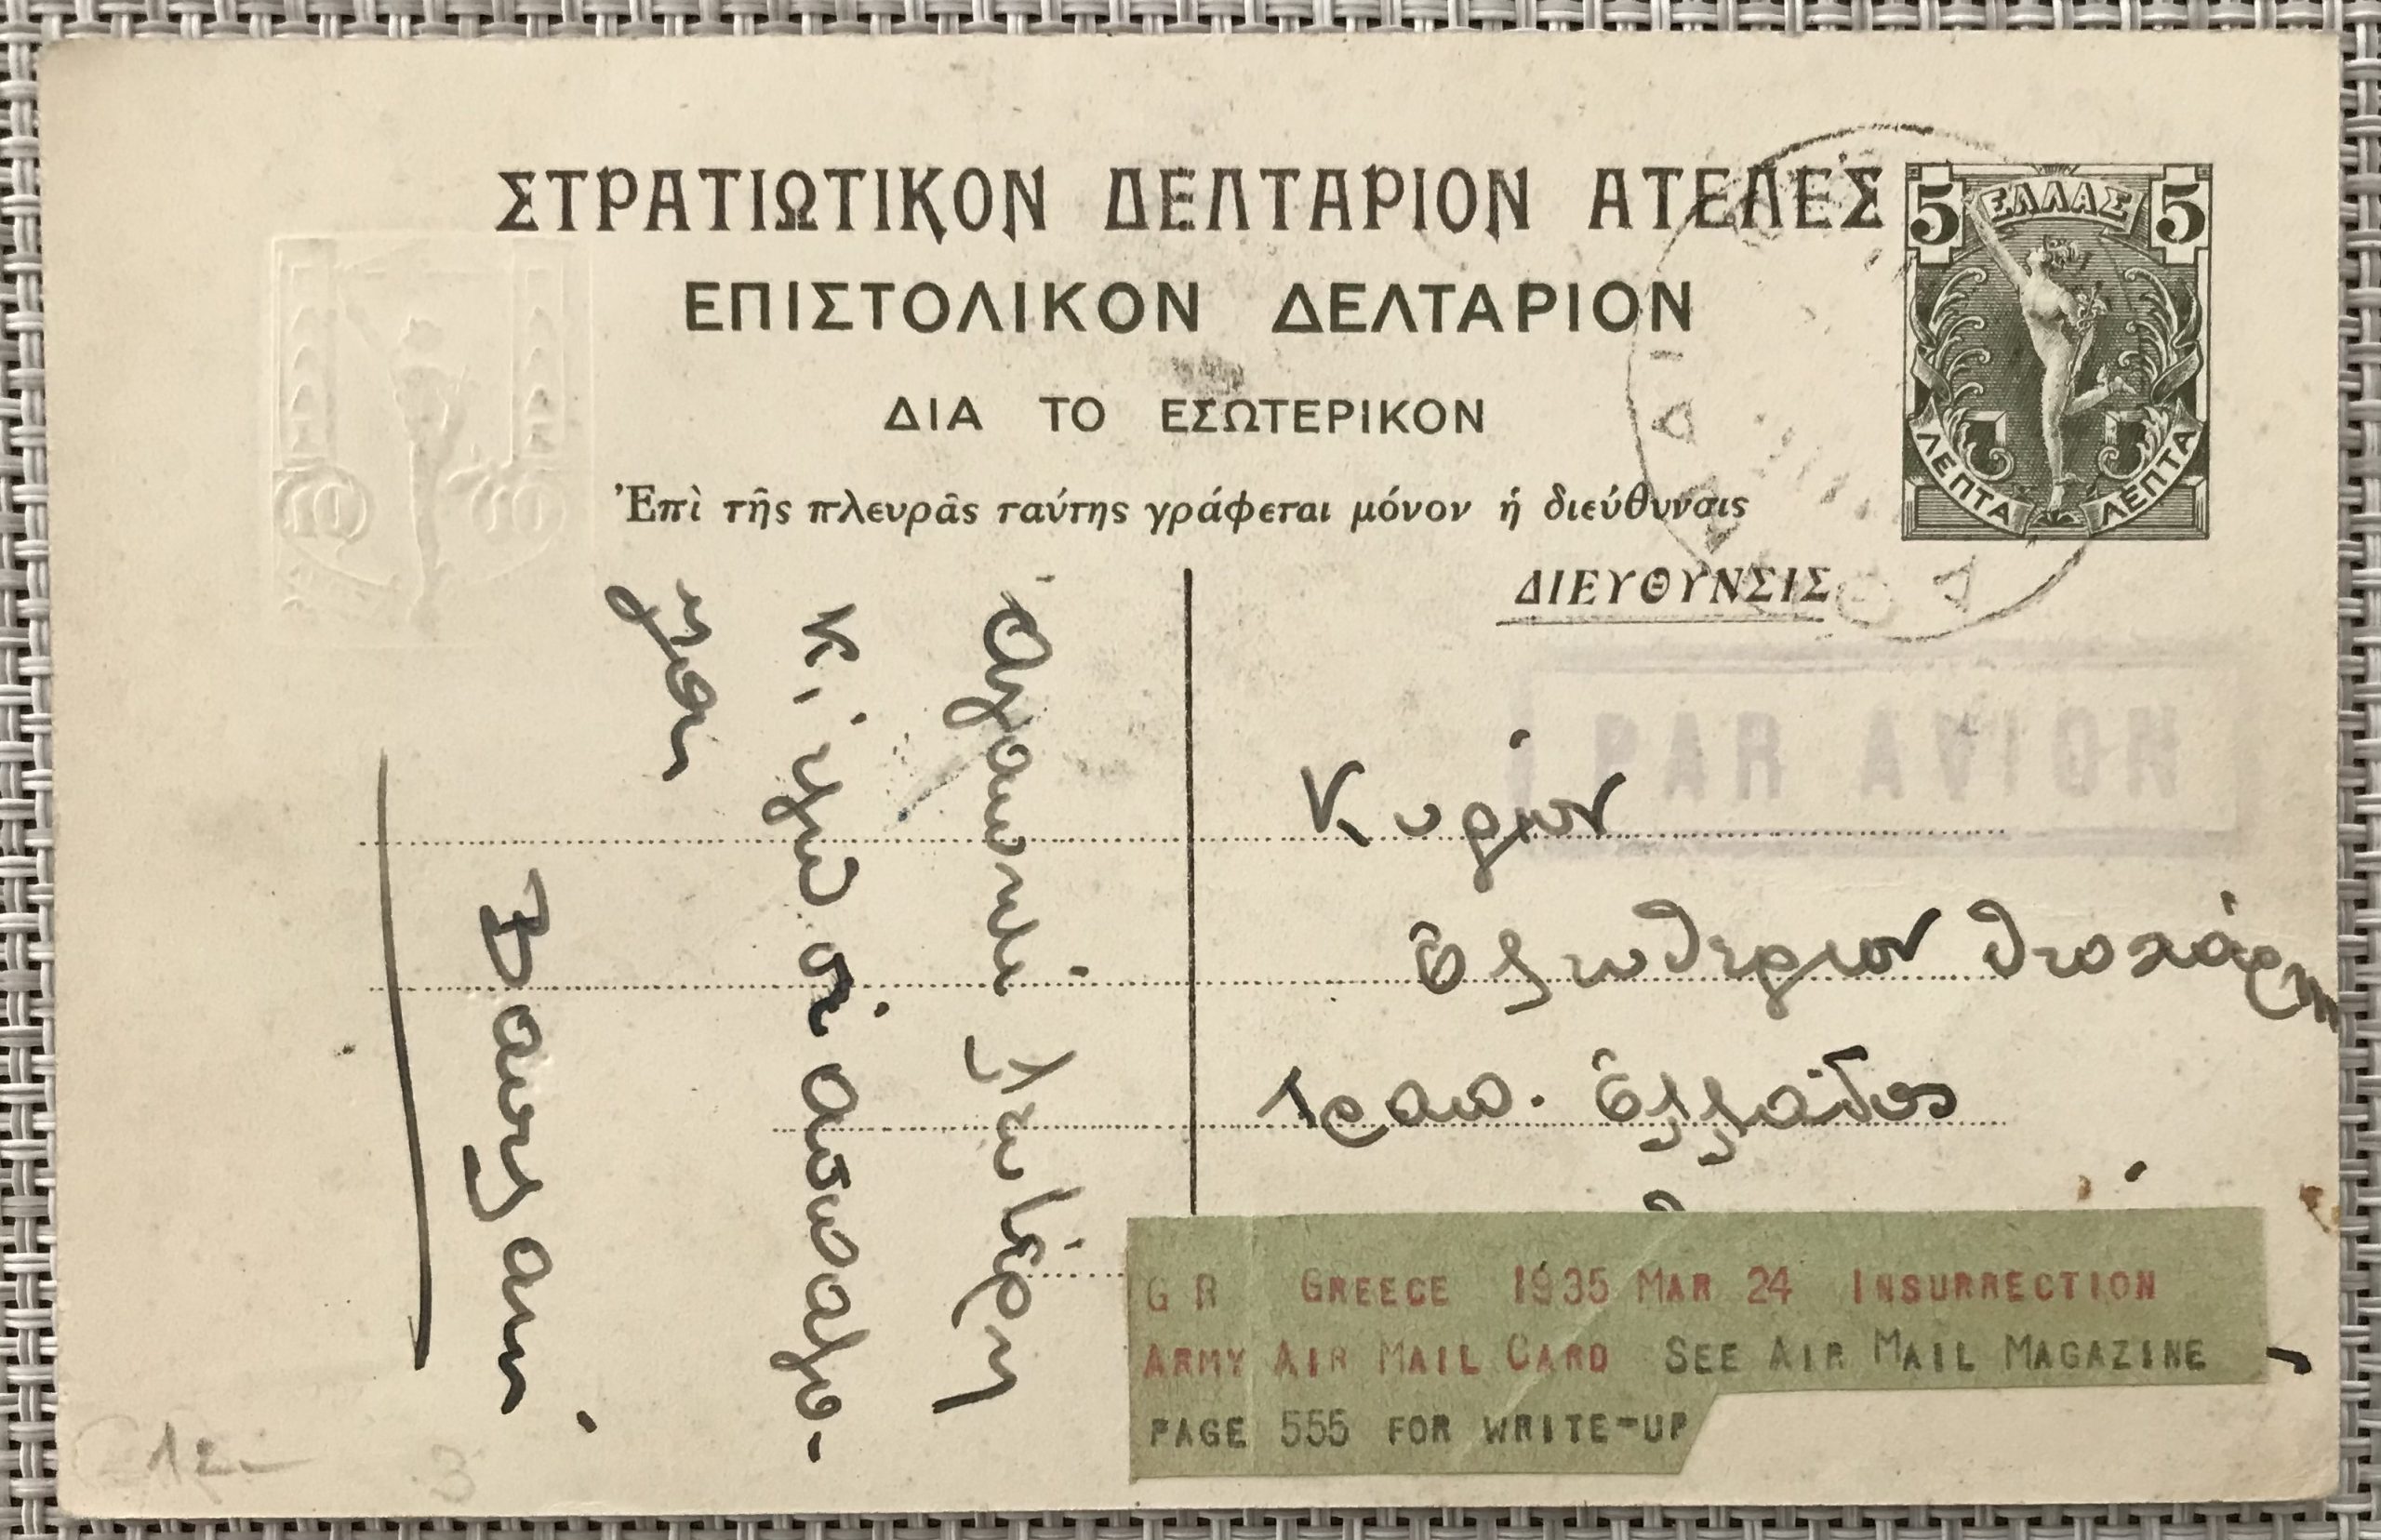 ΣΤΡΑΤΙΩΤΙΚΟΝ ΔΕΛΤΑΡΙΟΝ ΑΤΕΛΕΣ
ΕΠΙΣΤΟΛΙΚΟΝ ΔΕΛΤΑΡΙΟΝ
ΔΙΑ ΤΟ ΕΣΩΤΕΡΙΚΟΝ
Ἐπὶ τῆς πλευρᾶς ταύτης γράφεται μόνον ἡ διεύθυνσις
5 ΕΛΛΑΣ 5
ΛΕΠΤΑ ΛΕΠΤΑ
10 10
ΔΙΕΥΘΥΝΣΙΣ
PAR AVION
Κυρίον
Ἐλευθεριον Θεοχάρη
Τραπ. Ἑλλάδος
Ἀγαπητέ Λευτέρη
μου
GR GREECE 1935 MAR 24 INSURRECTION
ARMY AIR MAIL CARD SEE AIR MAIL MAGAZINE
PAGE 555 FOR WRITE-UP
12-
3